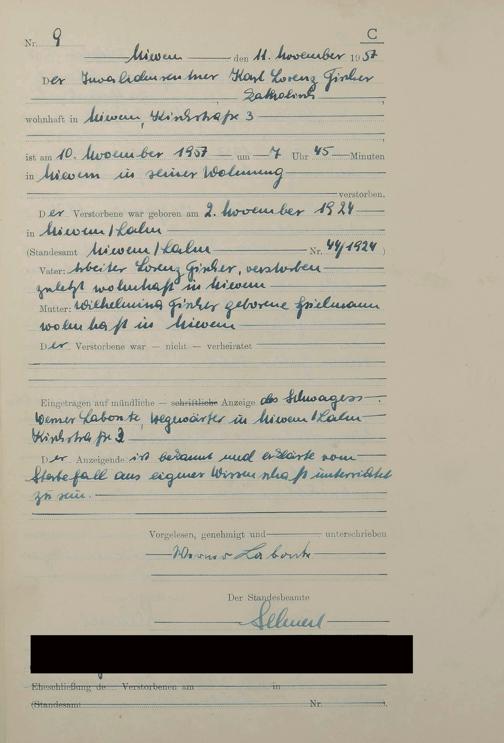 Nr. 9 C
Miewen den 11. November 1957
Der Invalidenrentner Karl Lorenz Fischer
katholisch
wohnhaft in Miewen, Kirchstraße 3
ist am 10. November 1957 um 7 Uhr 45 Minuten
in Miewen in seiner Wohnung
verstorben.
Der Verstorbene war geboren am 2. November 1924
in Miewen/Lahn
(Standesamt Miewen/Lahn Nr. 44/1924)
Vater: Arbeiter Lorenz Fischer, verstorben
zuletzt wohnhaft in Miewen
Mutter: Wilhelmina Fischer geborene Spielmann
wohnhaft in Miewen
Der Verstorbene war — nicht — verheiratet
Eingetragen auf mündliche — schriftliche Anzeige des Schwagers
Werner Labonte, Wegewärter in Miewen/Lahn
Kirchstraße
Der Anzeigende ist bekannt und erklärte vom
Sterbefall aus eigener Wissenschaft unterrichtet
zu sein.
Vorgelesen, genehmigt und unterschrieben
Werner Labonte
Der Standesbeamte
Eheschließung de Verstorbenen am in
(Standesamt Nr.